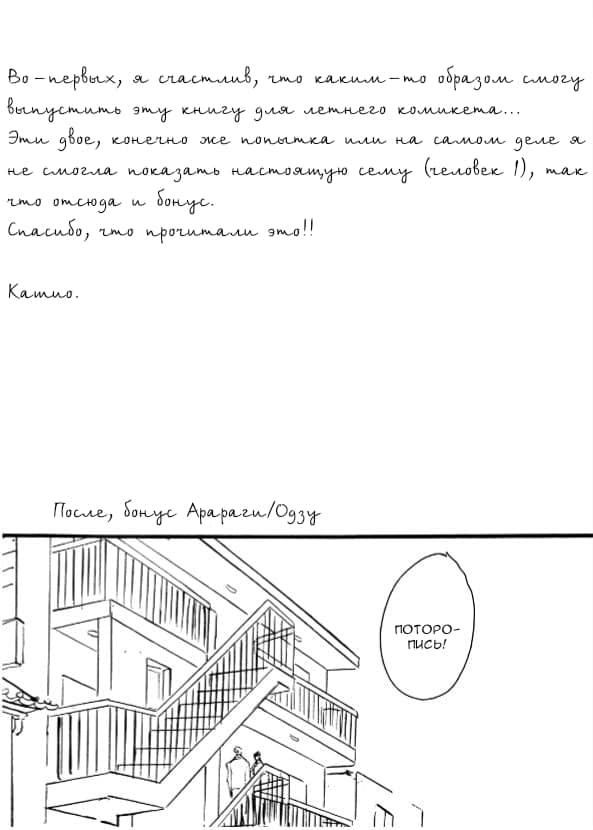 Во-первых, я счастлив, что каким-то образом смогу
выпустить эту книгу для летнего комикета...
Эти двое, конечно же попытка или на самом деле я
не смогла показать настоящую сему (человек 1), так
что отсюда и бонус.
Спасибо, что прочитали это!!
Кашио.
После, бонус Арараги/Одзу
ПОТОРО-
ПИСЬ!